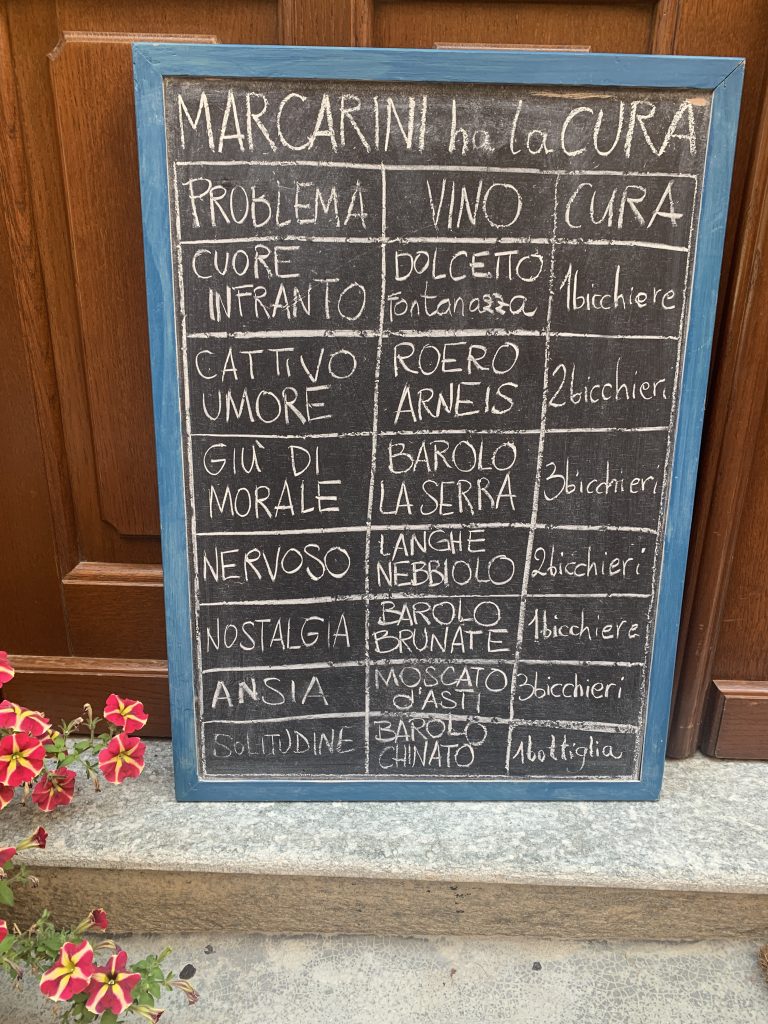 MARCARINI ha la CURA
PROBLEMA VINO CURA
CUORE INFRANTO DOLCETTO Fontanazza 1 bicchiere
CATTIVO UMORE ROERO ARNEIS 2 bicchieri
GIÙ DI MORALE BAROLO LA SERRA 3 bicchieri
NERVOSO LANGHE NEBBIOLO 2 bicchieri
NOSTALGIA BAROLO BRUNATE 1 bicchiere
ANSIA MOSCATO d'ASTI 3 bicchieri
SOLITUDINE BAROLO CHINATO 1 bottiglia